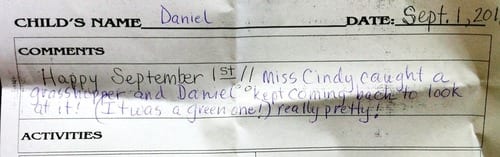 CHILD'S NAME Daniel DATE: Sept. 1, 201
COMMENTS
Happy September 1st!! Miss Cindy caught a
grasshopper and Daniel kept coming back to look
at it! (It was a green one!) really pretty!
ACTIVITIES